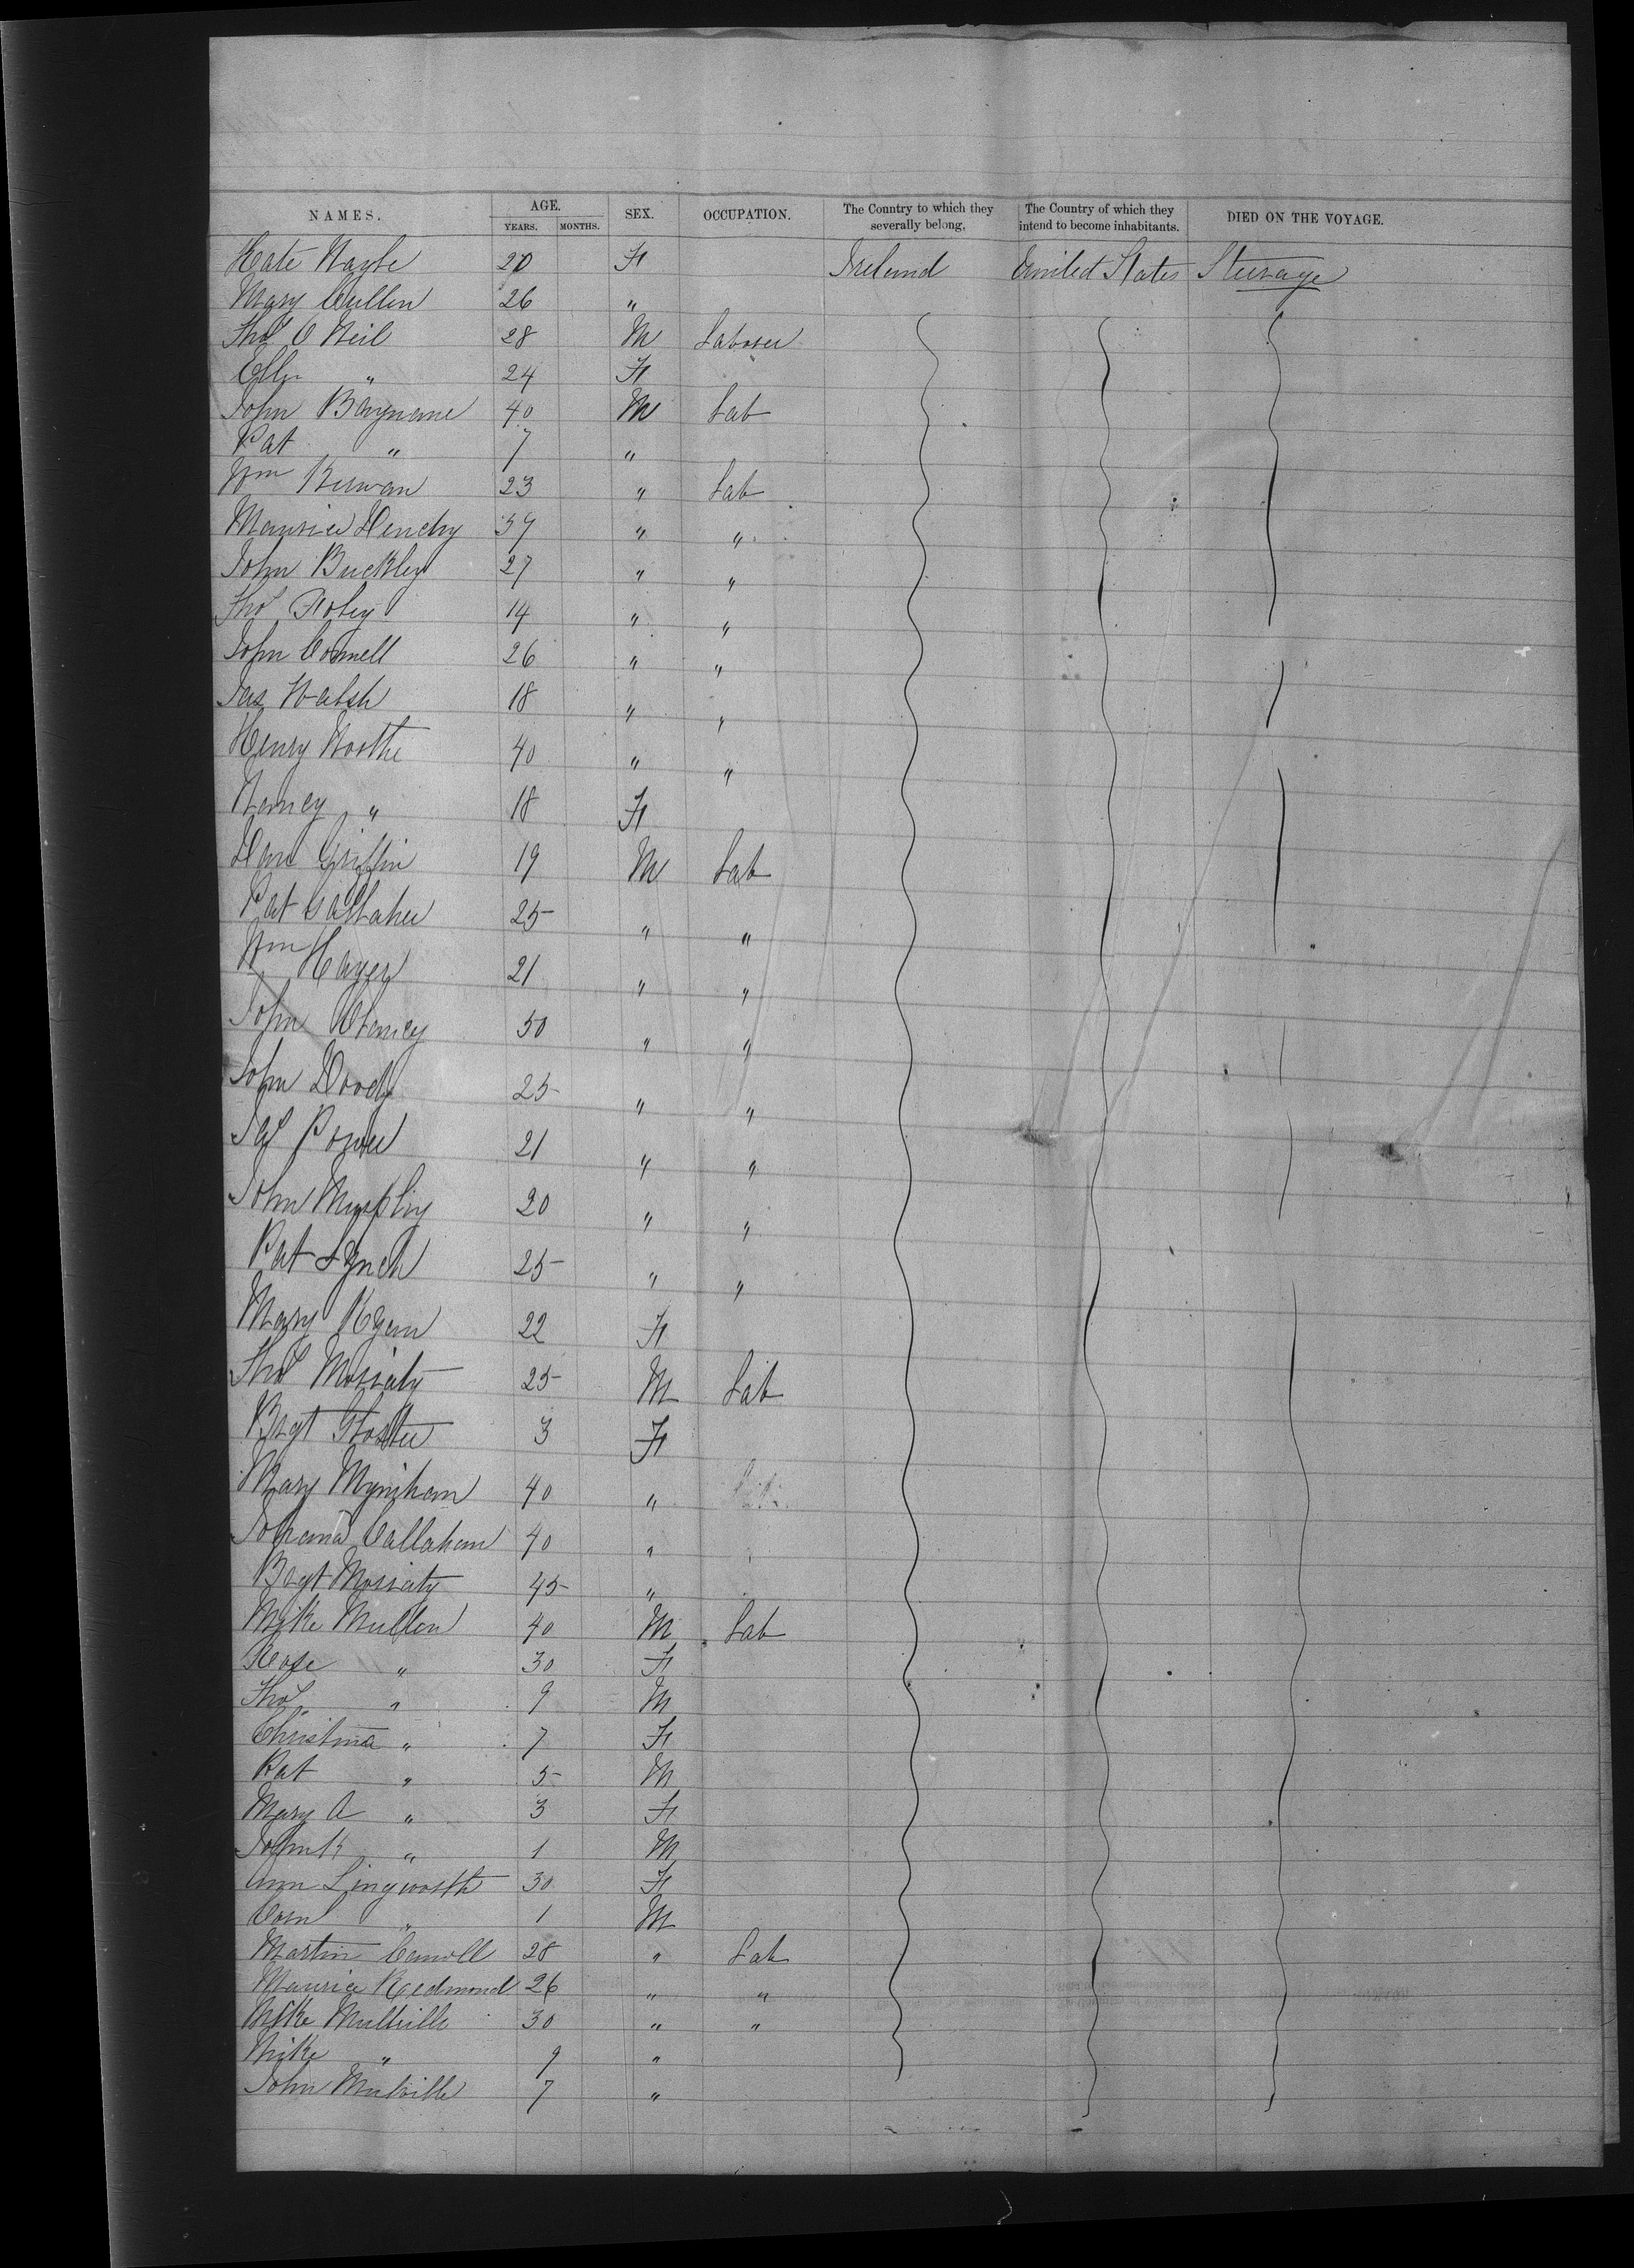 NAMES. AGE. SEX. OCCUPATION. The Country to which they severally belong. The Country of which they intend to become inhabitants. DIED ON THE VOYAGE.
YEARS. MONTHS.
Kate 20 F Ireland United States Steerage
Mary Cullen 26 "
Thos O Neil 28 M Laborer
Ellen " 24 F
John 40 M Lab
Pat " 7 "
Wm Kirwan 23 " Lab
Maurice 39 " "
John Buckley 27 " "
Thos Foley 14 " "
John Connell 26 " "
Jas Walsh 18 " "
Henry 40 " "
Nancy " 18 F
Dan Griffin 19 M Lab
Pat Gallaher 25 " "
Wm Hayes 21 " "
John 50 " "
John Doody 25 " "
Power 21 " "
John Murphy 20 " "
Pat Lynch 25 " "
Mary Ryan 22 F
Thos Moriaty 25 M Lab
Brgt Gloster 3 F
Mary 40 "
Johana Callahan 40 "
Brgt Moriaty 45 "
Mike Mullen 40 M Lab
Rose " 30 F
Thos " 9 M
Christina " 7 F
Pat " 5 M
Mary A " 3 F
John K " 1 M
Ann Lingworth 30 F
Cornl " 1 M
Martin Carroll 28 " Lab
Maurice Redmond 26 " "
Mike Mulville 30 " "
Mike " 9 "
John Mulville 7 "